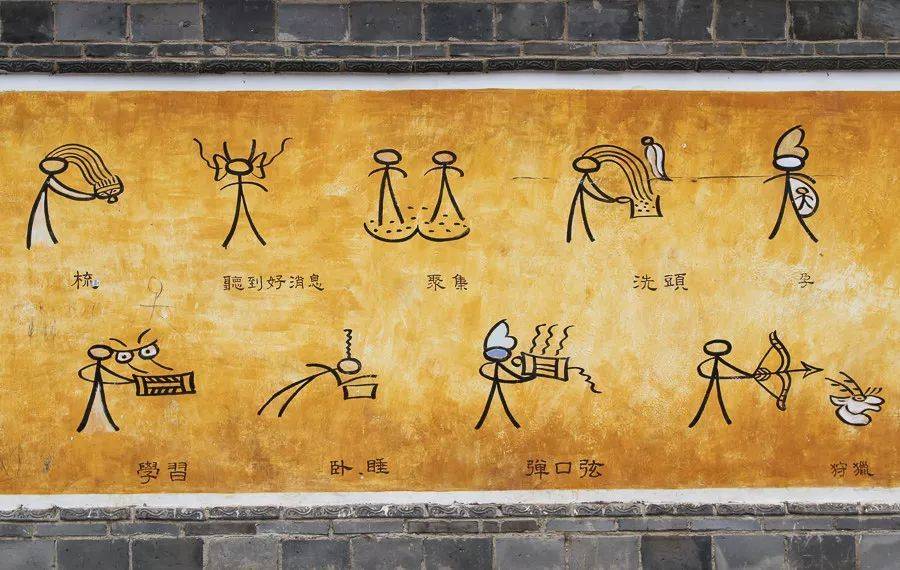 梳
聽到好消息
聚集
洗頭
孕
學習
卧睡
弹口弦
狩獵